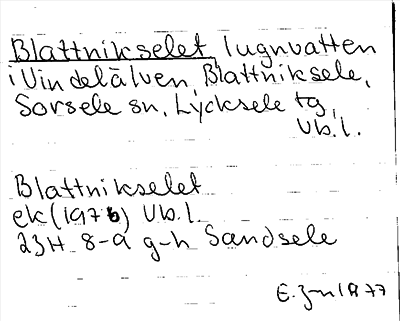 Blattnikselet, lugnvatten
i Vindelälven, Blattniksele,
Sorsele sn, Lycksele tg,
Vb.l.
Blattnikselet
ek (1976) Vb.l.
23H 8-9 g-h Sandsele
1977